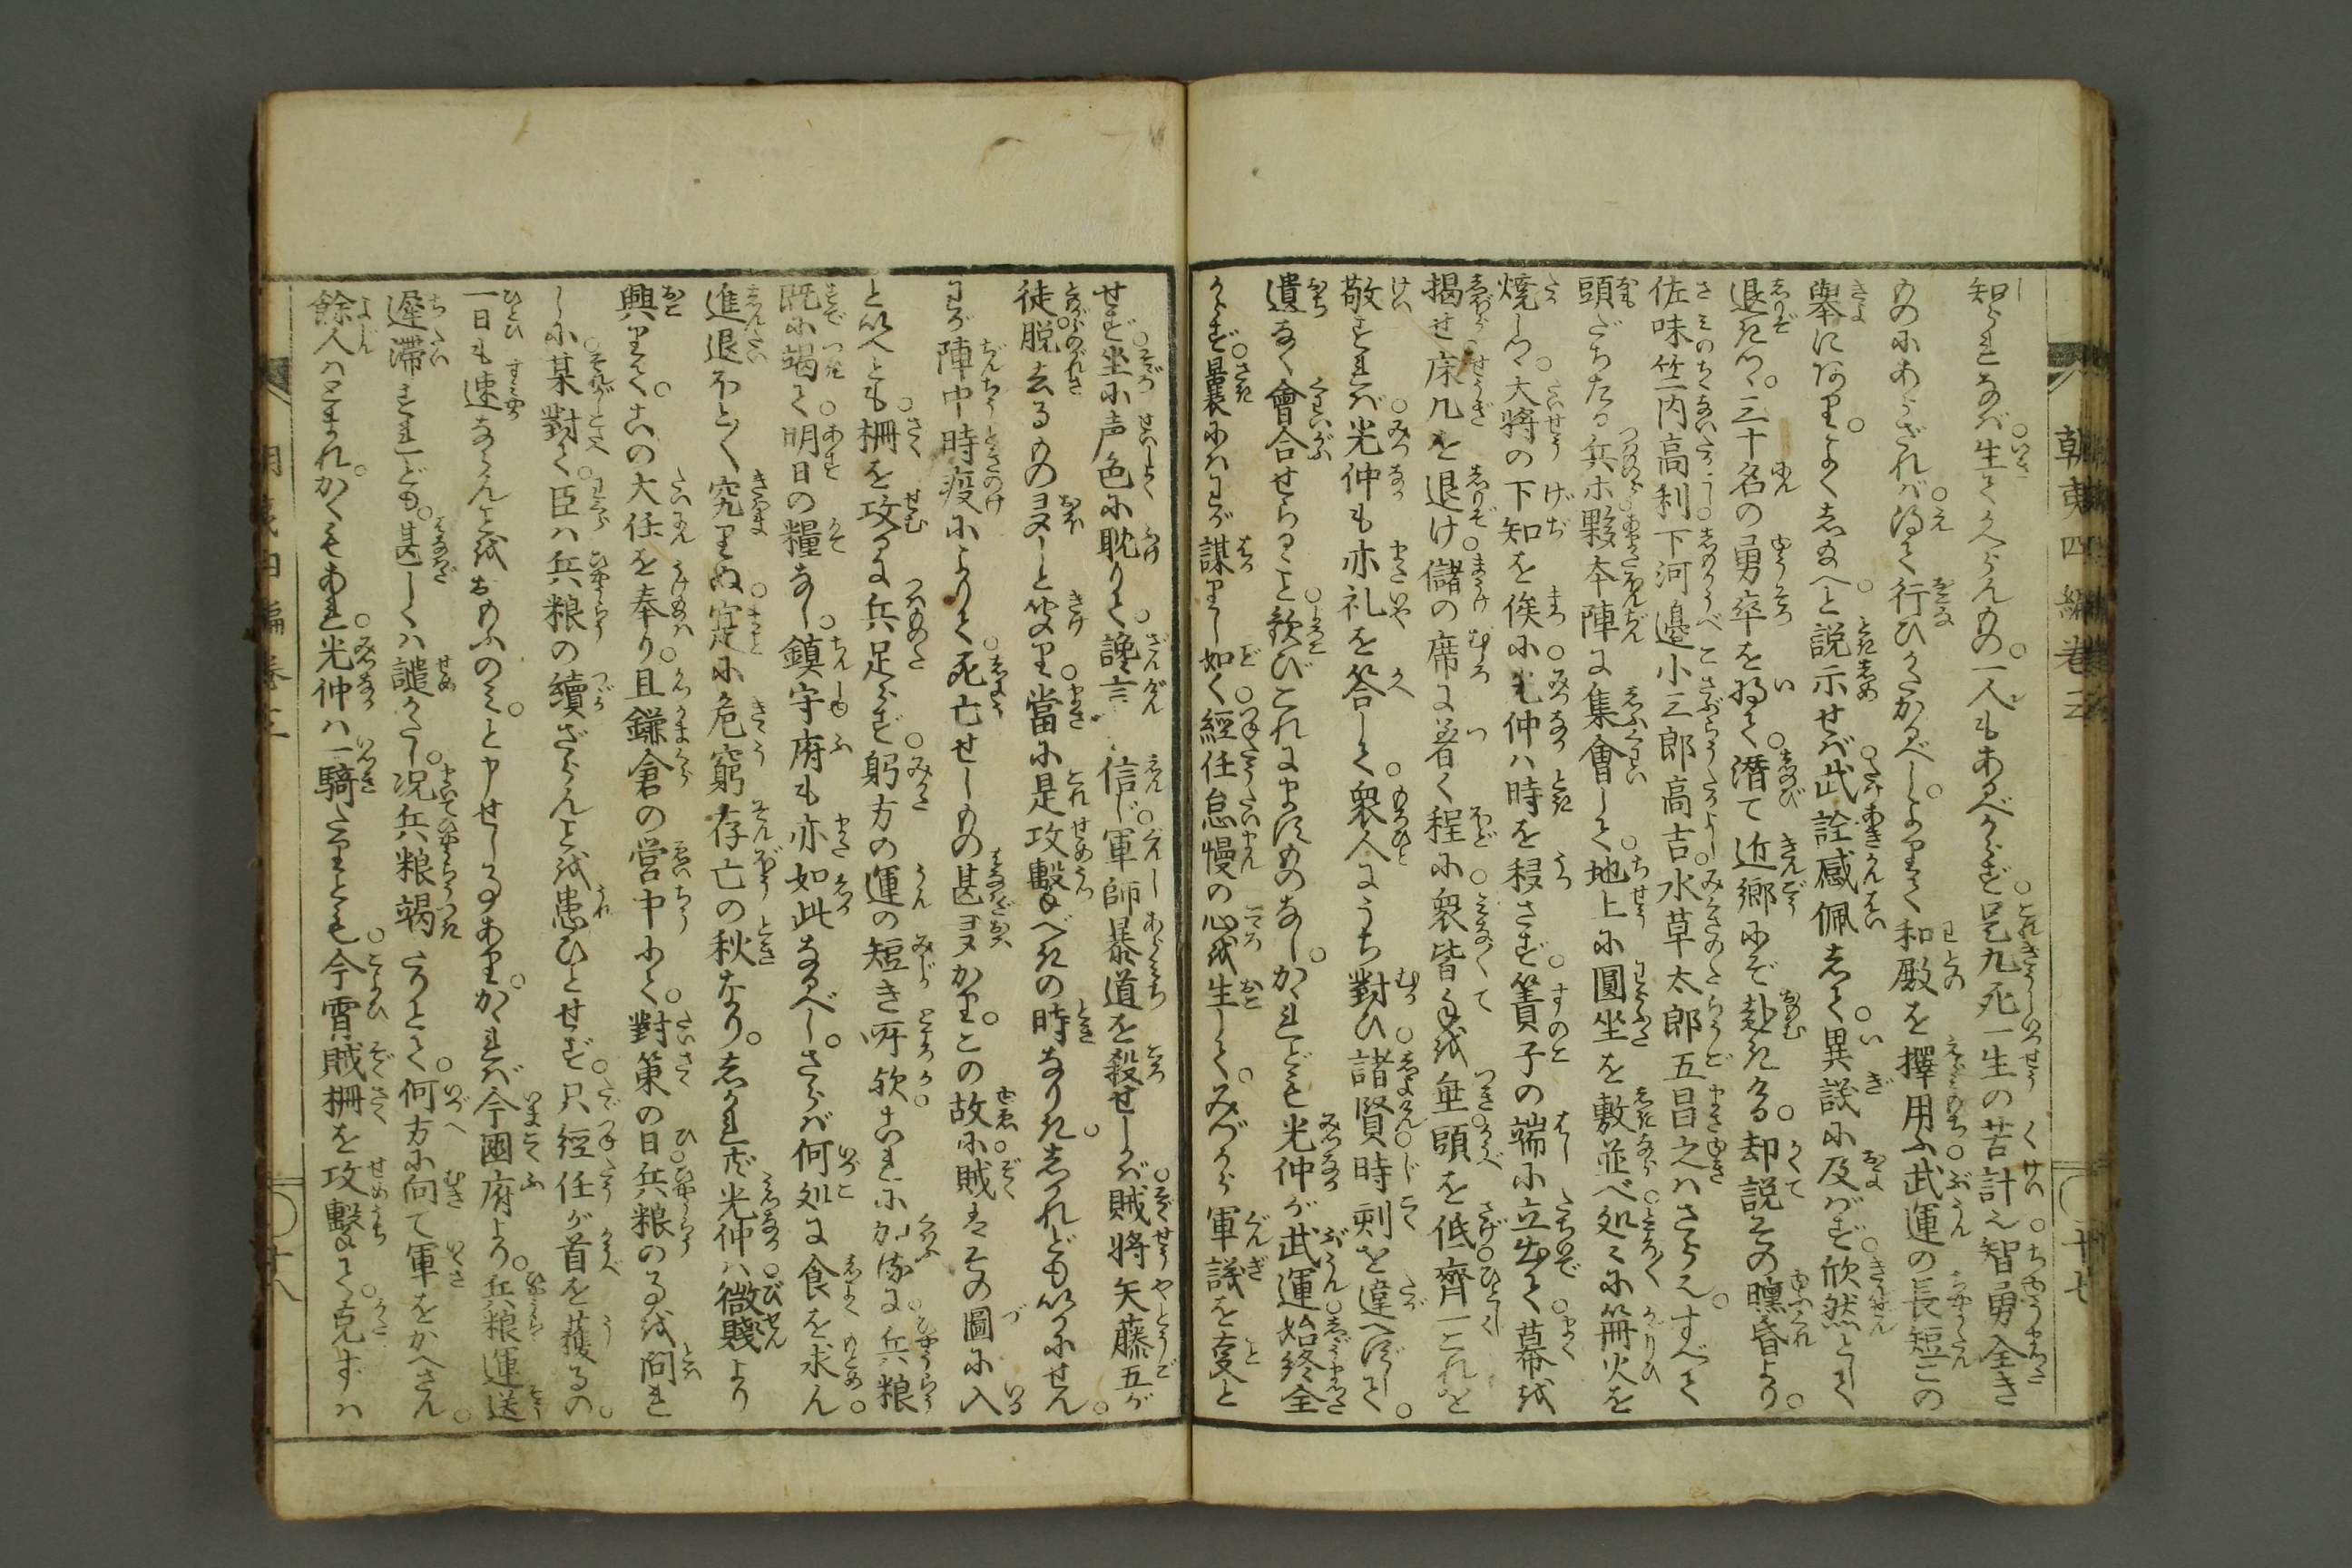 朝夷四編巻三
知られなバ生てかへらんもの。一人もあるべからず是九死一生の苦計之智勇全き
ものにあらざれバ得て行ひかたかるべし。よりて和殿を擇用ふ武運の長短この
舉にあり。よく志給へと説示せバ武詮感佩して。異議に及バず欣然として
退きつゝ。三十名の勇卒を将て潜て近郷にぞ赴きける却説その曛昏より。
佐味竺内高利下河邉小三郎高吉水草太郎五昌之ハさらえすべて
頭だちたる兵ホ夥本陣に集會して。地上に圓坐を敷並べ処々に篝火を
焼しつゝ大将の下知を俟に光仲ハ時を移さず簀子の端に立出て幕を
掲せ床几を退け儲の席に着く程に衆皆手を垂頭を低齊一これを
敬すれバ光仲も亦礼を答して衆人にうち對ひ諸賢時刻を違へずして。
遺なく會合せらるゝこと歓びこれにますものなし。かゝれども光仲が武運始終全
からず曩にハわが謀りし如く經任怠慢の心を生して。みづから軍議を定と
せず坐に声色に耽りて。讒言を信じ軍師暴道を殺せしが賊将矢藤五が
徒脱去るもの多しと聞り當に是攻撃べきの時なりき。しかれどもいかにせん。
わが陣中時疫によりて死亡せしもの甚多かり。この故に賊はその圖に入
といへども柵を攻るに兵足らず躬方の運の短き所欤これに加るに兵粮
既に竭て明日の糧なし。鎮守府も亦如此なるべし。さらバ何処に食を求ん。
進退ホとく究りぬ寔に危窮存亡の秋なり。しかれども光仲ハ微賤より
興りて。この大任を奉り。且鎌倉の営中にて。對策の日兵粮の事を問れ
しに某對て。臣ハ兵粮の續ざらんことを患ひとせず。只經任が首を獲るの。
一日も速ならんことをおもふのミ。と申せし事あり。かゝれバ今國府より。兵粮運送
遅滞すれども。甚しくハ譴がたし。况兵粮竭たりとて。何方に向て軍をかへさん。
餘人ハともあれ。かくもあれ光仲ハ一騎たりとも今宵賊柵を攻撃て。克ずハ